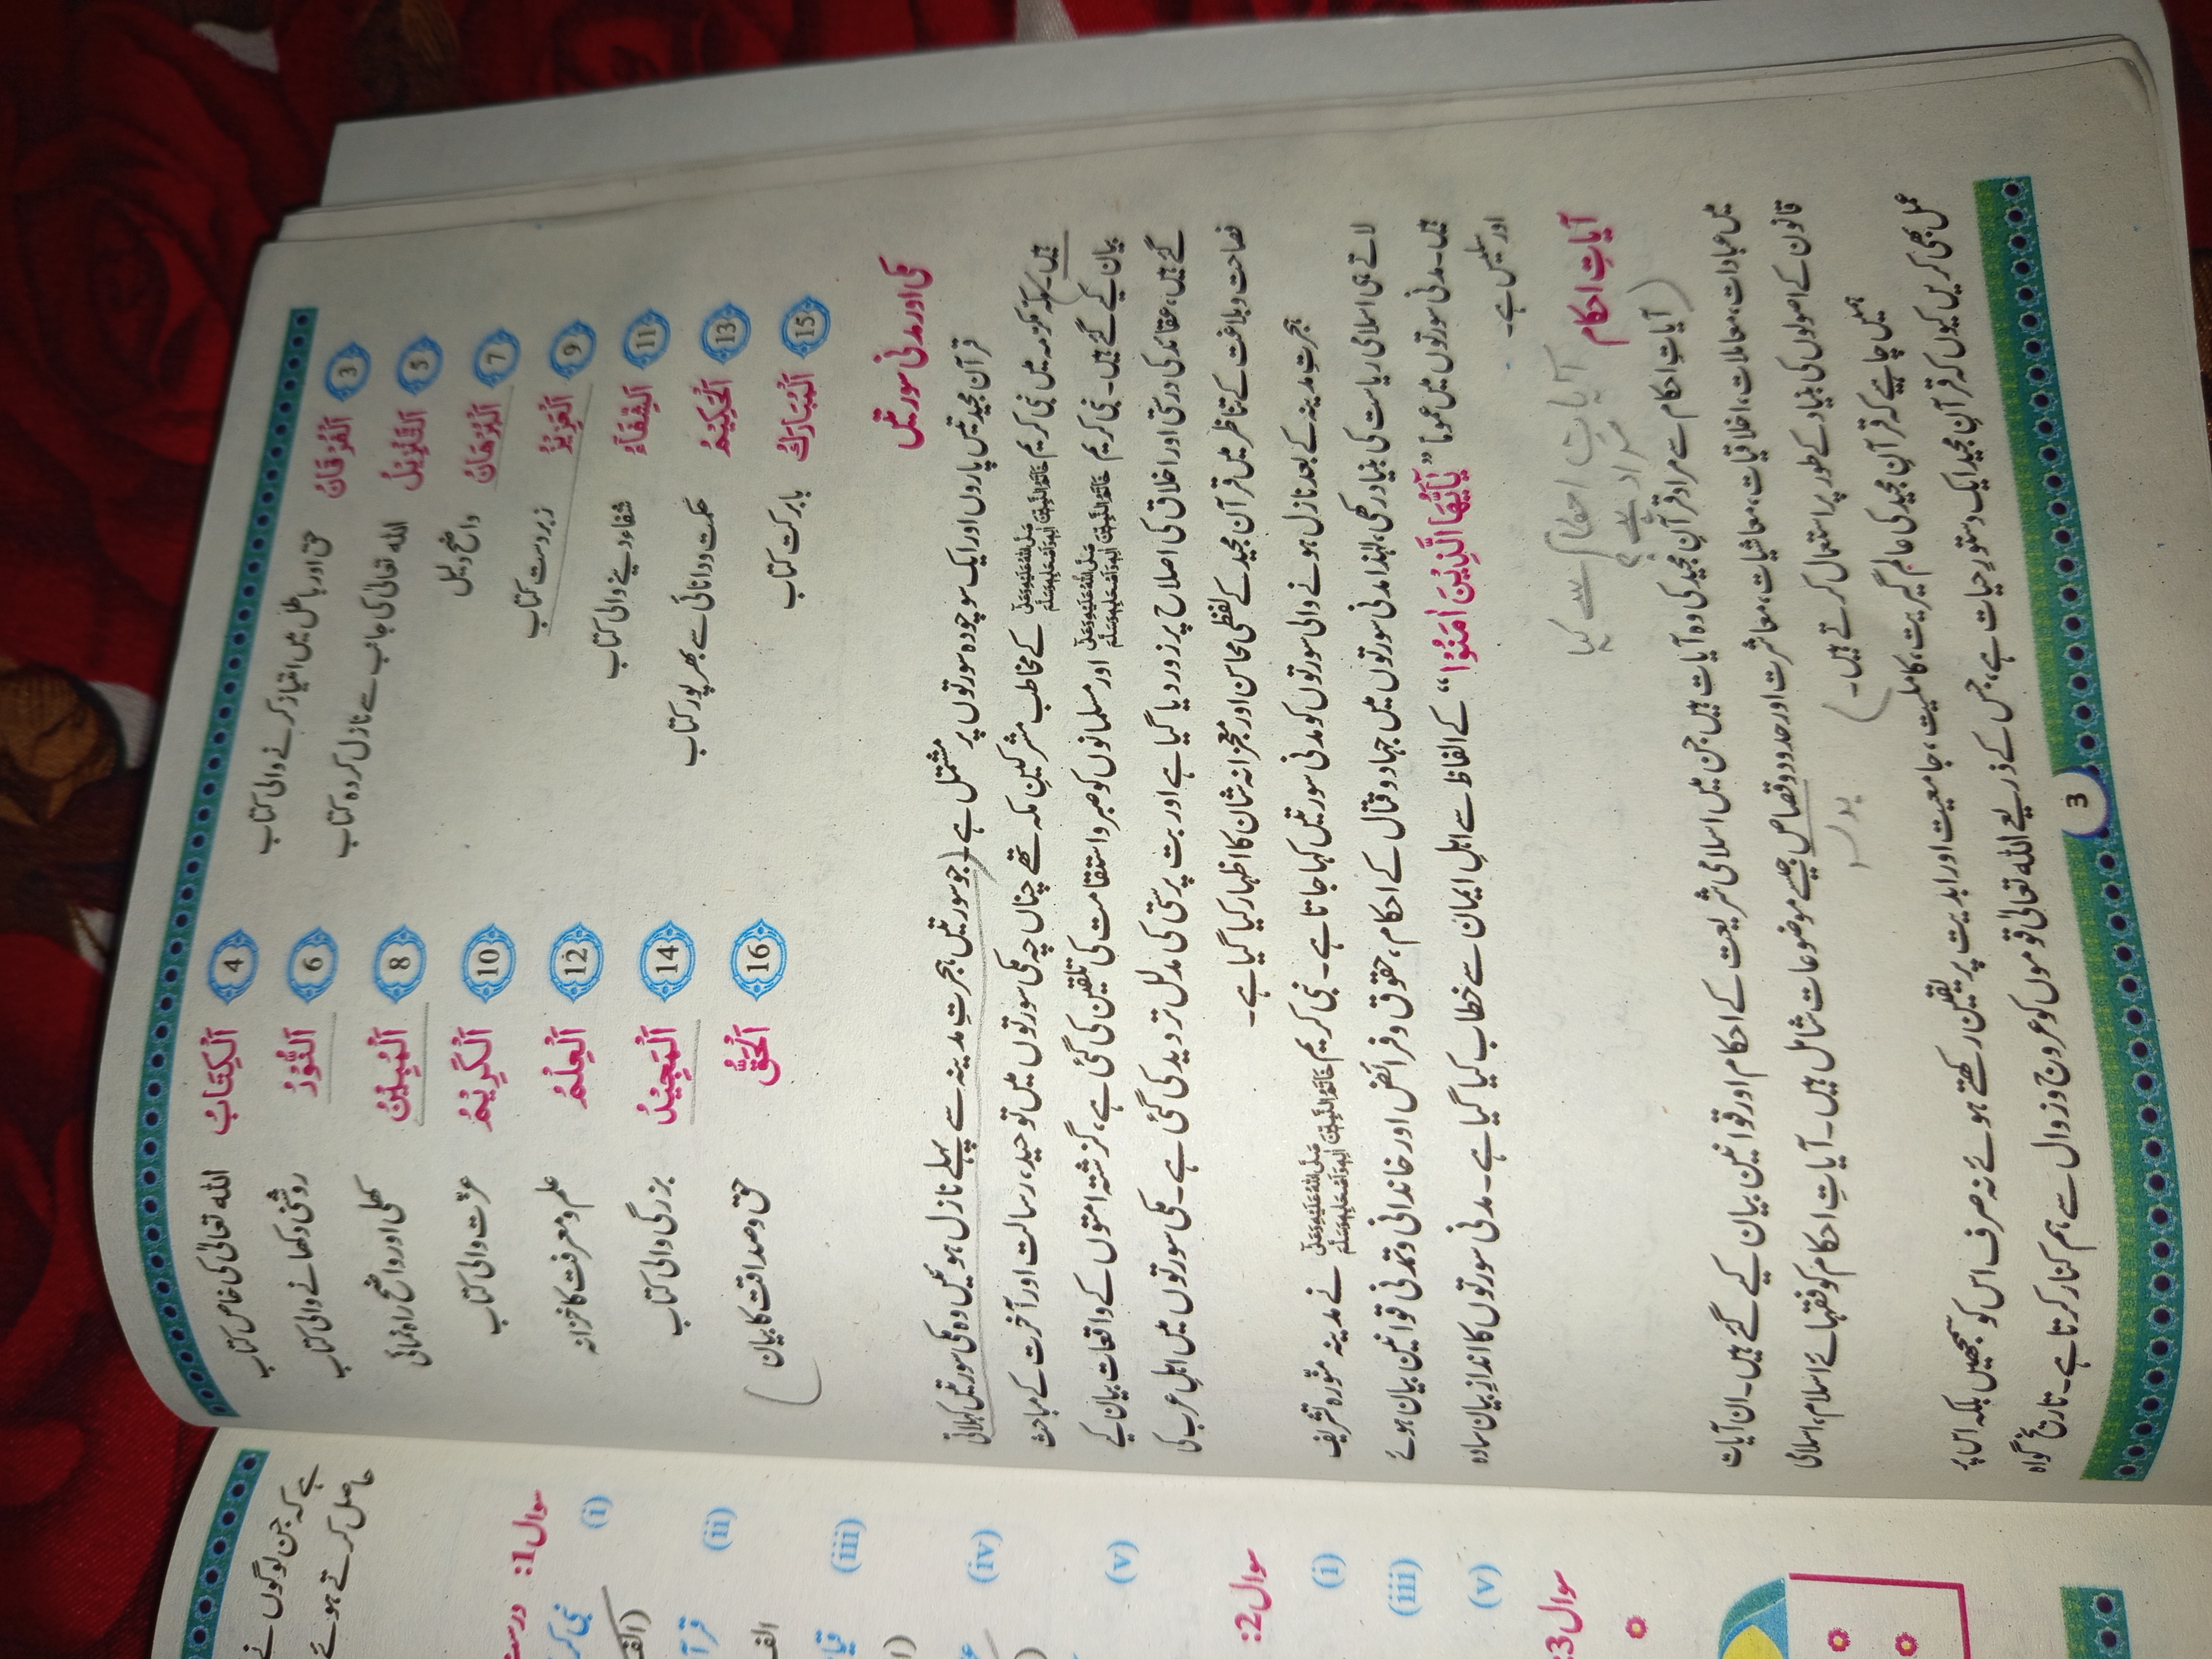 3 اَلْفُرْقَانُ حق اور باطل میں امتیاز کرنے والی کتاب 4 اَلْكِتَابُ اللہ تعالیٰ کی خاص کتاب
5 اَلتَّنْزِیْلُ اللہ تعالیٰ کی جانب سے نازل کردہ کتاب 6 اَلنُّوْرُ روشنی دکھانے والی کتاب
7 اَلْبُرْهَانُ واضح دلیل 8 اَلْمُبِیْنُ کھلی اور واضح راہ نمائی
9 اَلْعَزِیْزُ زبردست کتاب 10 اَلْكَرِیْمُ عزت والی کتاب
11 اَلشِّفَآءُ شفا دینے والی کتاب 12 اَلْعِلْمُ علم و معرفت کا خزانہ
13 اَلْحَكِیْمُ حکمت و دانائی سے بھرپور کتاب 14 اَلْمَجِیْدُ بزرگی والی کتاب
15 اَلْمُبَارَكُ بابرکت کتاب 16 اَلْحَقُّ حق و صداقت کا بیان
مکی اور مدنی سورتیں
قرآن مجید تیس پاروں اور ایک سو چودہ سورتوں پر مشتمل ہے۔ (جو سورتیں ہجرتِ مدینہ سے پہلے نازل ہوئیں وہ مکی سورتیں کہلاتی
ہیں۔ مکہ مکرمہ میں نبی کریم خَاتَمُ النَّبِیّٖنَ صَلَّى اللهُ عَلَيْهِ وَعَلٰى اٰلِهٖ وَاَصْحَابِهٖ وَسَلَّمَ کے مخاطب مشرکینِ مکہ تھے چناں چہ مکی سورتوں میں توحید، رسالت اور آخرت کے مباحث
بیان کیے گئے ہیں۔ نبی کریم خَاتَمُ النَّبِیّٖنَ صَلَّى اللهُ عَلَيْهِ وَعَلٰى اٰلِهٖ وَاَصْحَابِهٖ وَسَلَّمَ اور مسلمانوں کو صبر و استقامت کی تلقین کی گئی ہے، گزشتہ امتوں کے واقعات بیان کیے
گئے ہیں، عقائد کی درستی اور اخلاق کی اصلاح پر زور دیا گیا ہے اور بت پرستی کی مدلل تردید کی گئی ہے۔ مکی سورتوں میں اہلِ عرب کی
فصاحت و بلاغت کے تناظر میں قرآن مجید کے لفظی محاسن اور معجزانہ شان کا اظہار کیا گیا ہے۔
ہجرتِ مدینہ کے بعد نازل ہونے والی سورتوں کو مدنی سورتیں کہا جاتا ہے۔ نبی کریم خَاتَمُ النَّبِیّٖنَ صَلَّى اللهُ عَلَيْهِ وَعَلٰى اٰلِهٖ وَاَصْحَابِهٖ وَسَلَّمَ نے مدینہ منورہ تشریف
لاتے ہی اسلامی ریاست کی بنیاد رکھی، لہٰذا مدنی سورتوں میں جہاد و قتال کے احکام، حقوق و فرائض اور خاندانی و تمدنی قوانین بیان ہوئے
ہیں۔ مدنی سورتوں میں عموماً ”یٰٓاَیُّهَا الَّذِیْنَ اٰمَنُوْا“ کے الفاظ سے اہلِ ایمان سے خطاب کیا گیا ہے۔ مدنی سورتوں کا اندازِ بیان سادہ
اور سلیس ہے۔
آیاتِ احکام سے کیا
مراد ہے؟
آیاتِ احکام
(آیاتِ احکام سے مراد قرآن مجید کی وہ آیات ہیں جن میں اسلامی شریعت کے احکام اور قوانین بیان کیے گئے ہیں۔ ان آیات
میں عبادات، معاملات، اخلاقیات، معاشیات، معاشرت اور حدود و قصاص جیسے موضوعات شامل ہیں۔ آیاتِ احکام کو فقہائے اسلام، اسلامی
قانون کے اصولوں کی بنیاد کے طور پر استعمال کرتے ہیں۔)
ہمیں چاہیے کہ قرآنِ مجید کی عالم گیریت، کاملیت، جامعیت اور ابدیت پر یقین رکھتے ہوئے نہ صرف اس کو سمجھیں بلکہ اس پر
عمل بھی کریں کیوں کہ قرآنِ مجید ایک دستورِ حیات ہے، جس کے ذریعے اللہ تعالیٰ قوموں کو عروج و زوال سے ہم کنار کرتا ہے۔ تاریخ گواہ
3
ہے کہ جن لوگوں نے
حاصل کرتے ہوئے
سوال 1: درست
(i) نبی کر
(الف
(ii) قرآ
الف
(iii) قیا
(iv)
(v)
سوال 2:
(i)
(iii)
(v)
سوال 3: